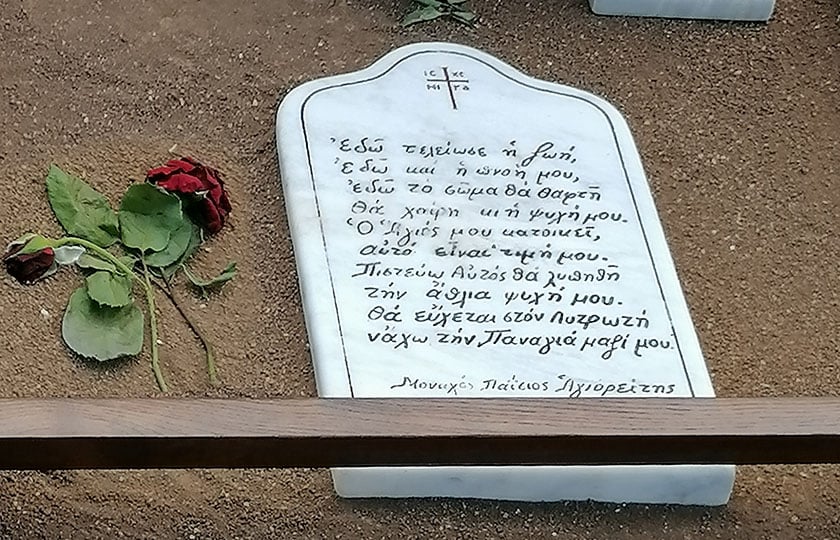 ΙC XC
ΝΙ ΚΑ
Ἐδῶ τελείωσε ἡ ζωή,
ἐδῶ καί ἡ πνοή μου,
ἐδῶ τό σῶμα θά θαφτῆ
θά χαρῆ κι ἡ ψυχή μου.
Ὁ Ἅγιός μου κατοικεῖ,
αὐτό εἶναι τιμή μου.
Πιστεύω Αὐτός θά λυπηθῆ
τήν ἄθλια ψυχή μου.
Θά εὔχεται στόν Λυτρωτή
νἄχω τήν Παναγιά μαζί μου.
Μοναχός Παΐσιος Ἁγιορείτης